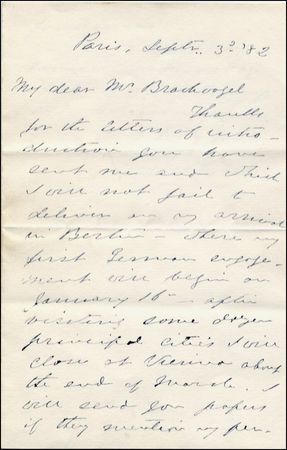 Paris, Septr. 3d '82
My dear Mr. Brachvogel
Thanks
for the letters of intro-
duction you have
sent me and which
I will not fail to
deliver on my arrival
in Berlin - There my
first German engage-
ment will begin on
January 16th - after
visiting some dozen
principal cities I will
close at Vienna about
the end of March. I
will send you papers
if they mention my per-